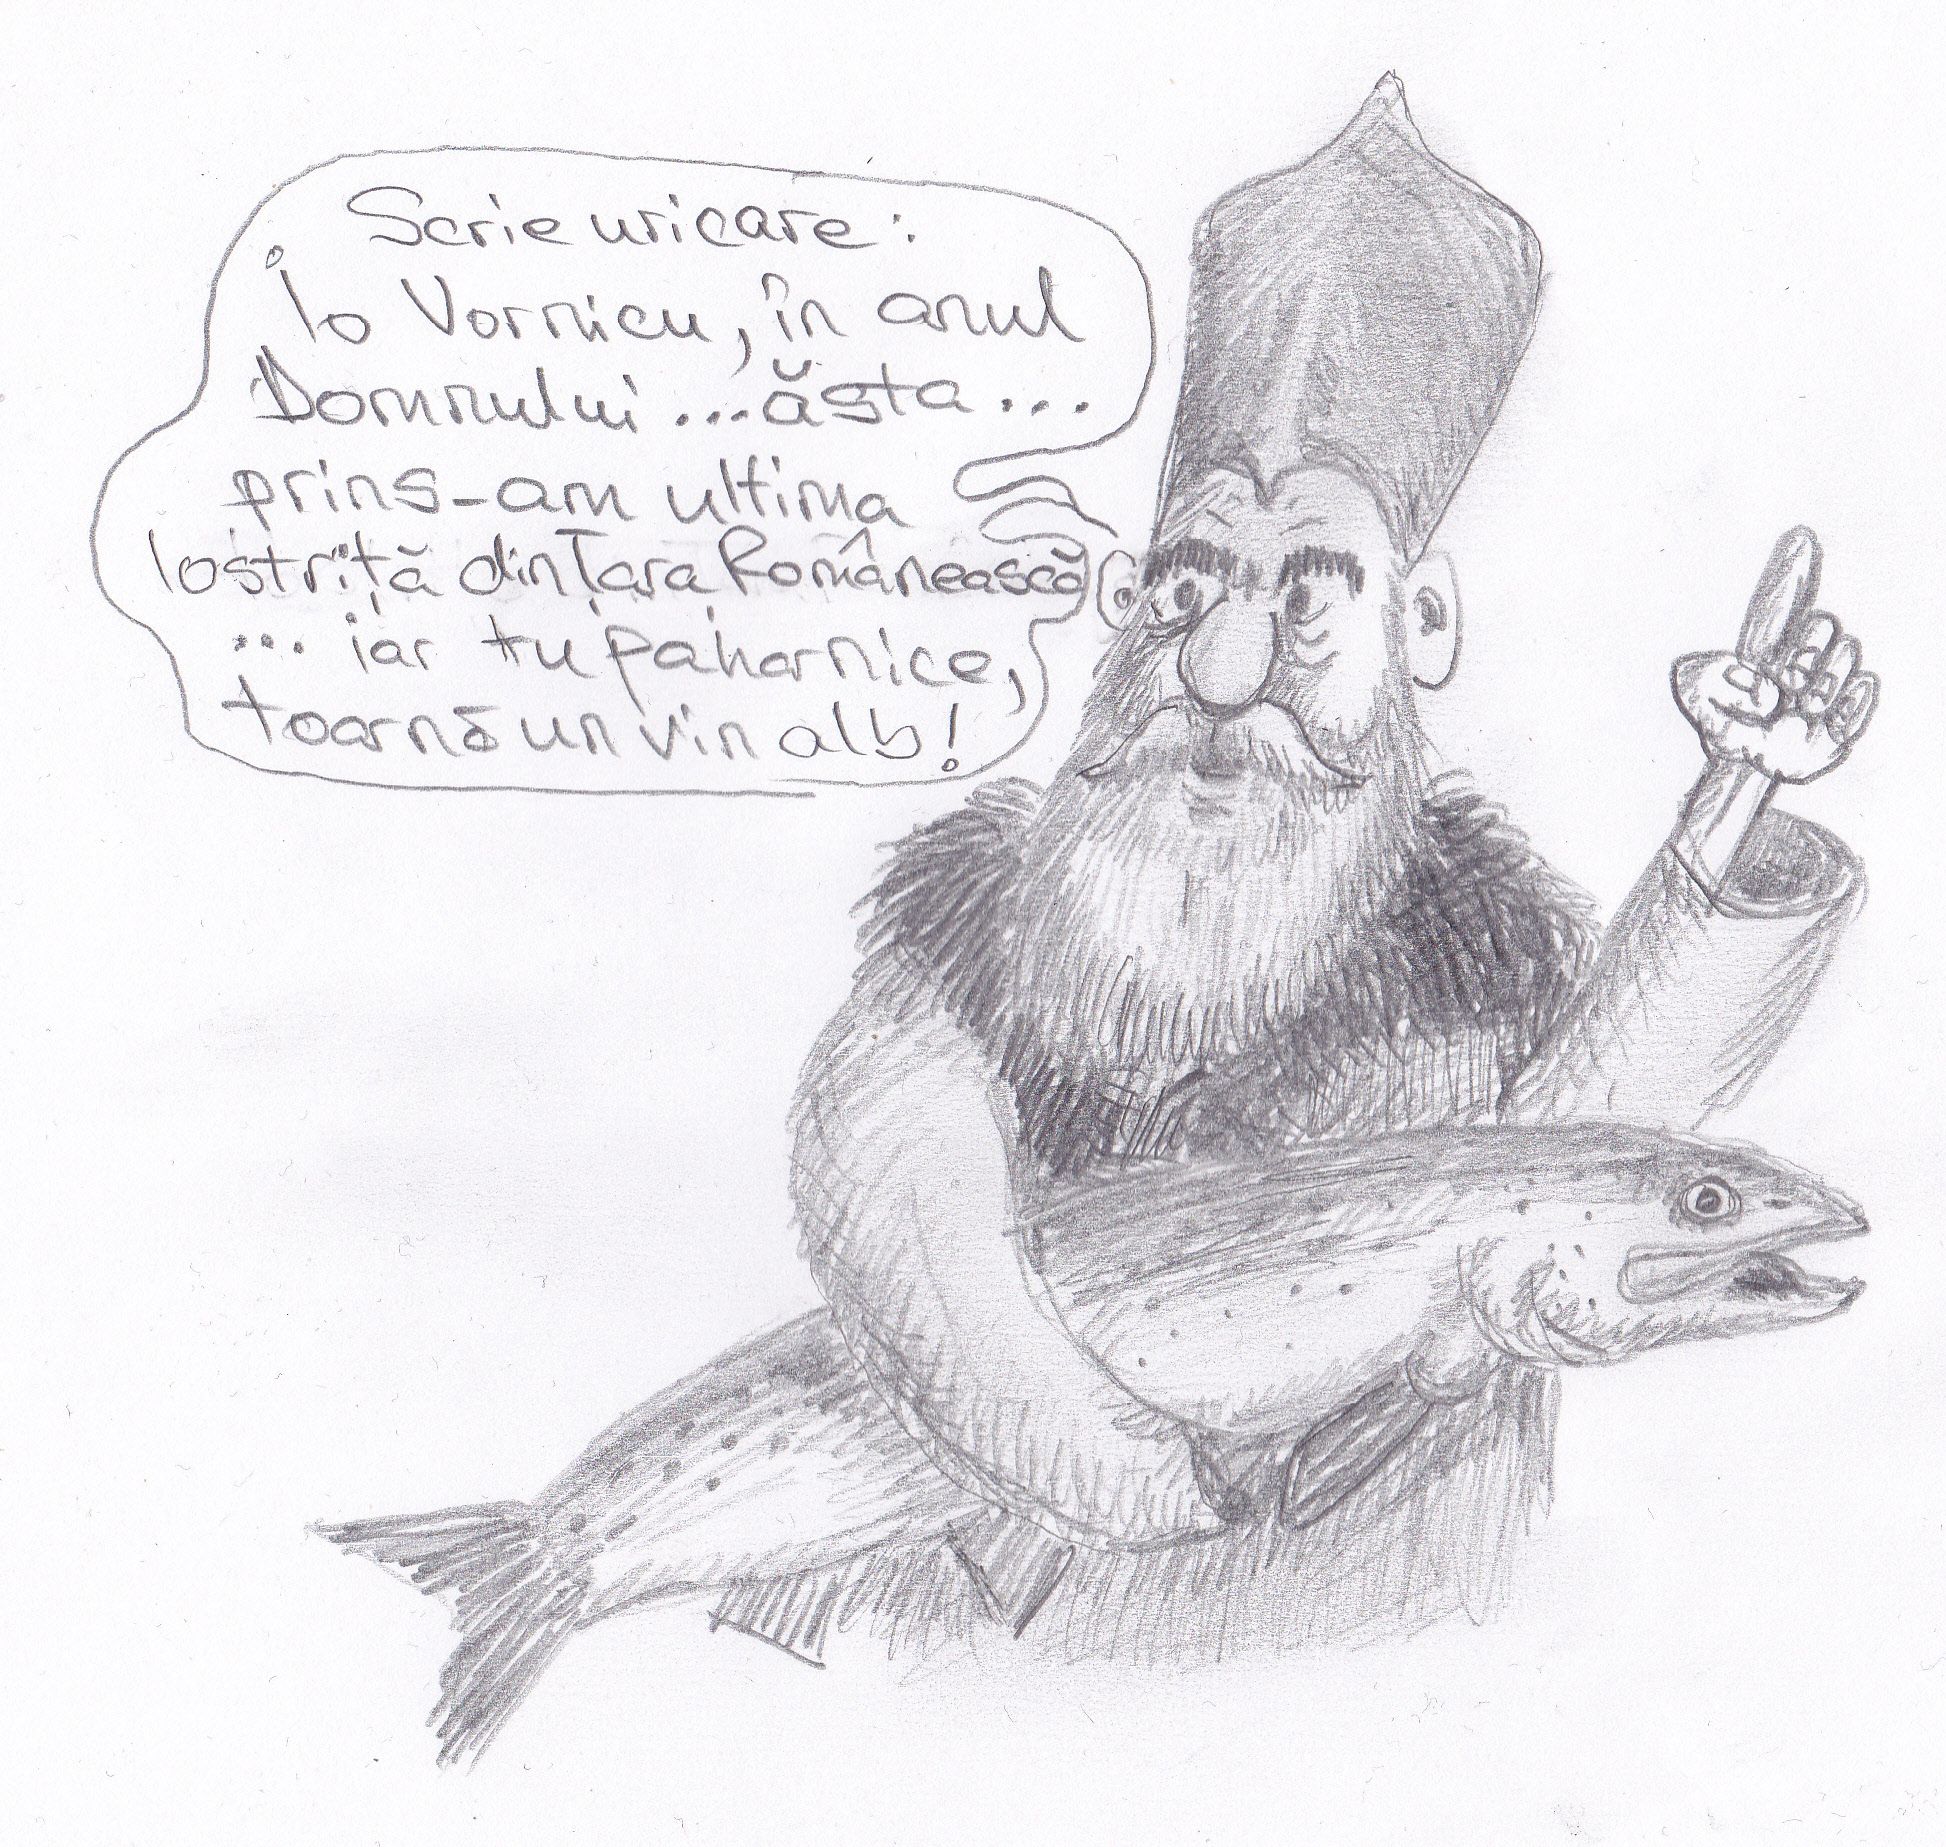 Scrie uricare:
Io Vornicu, în anul
Domnului ...ăsta...
prins-am ultima
lostriță din Țara Românească
... iar tu paharnice,
toarnă un vin alb!